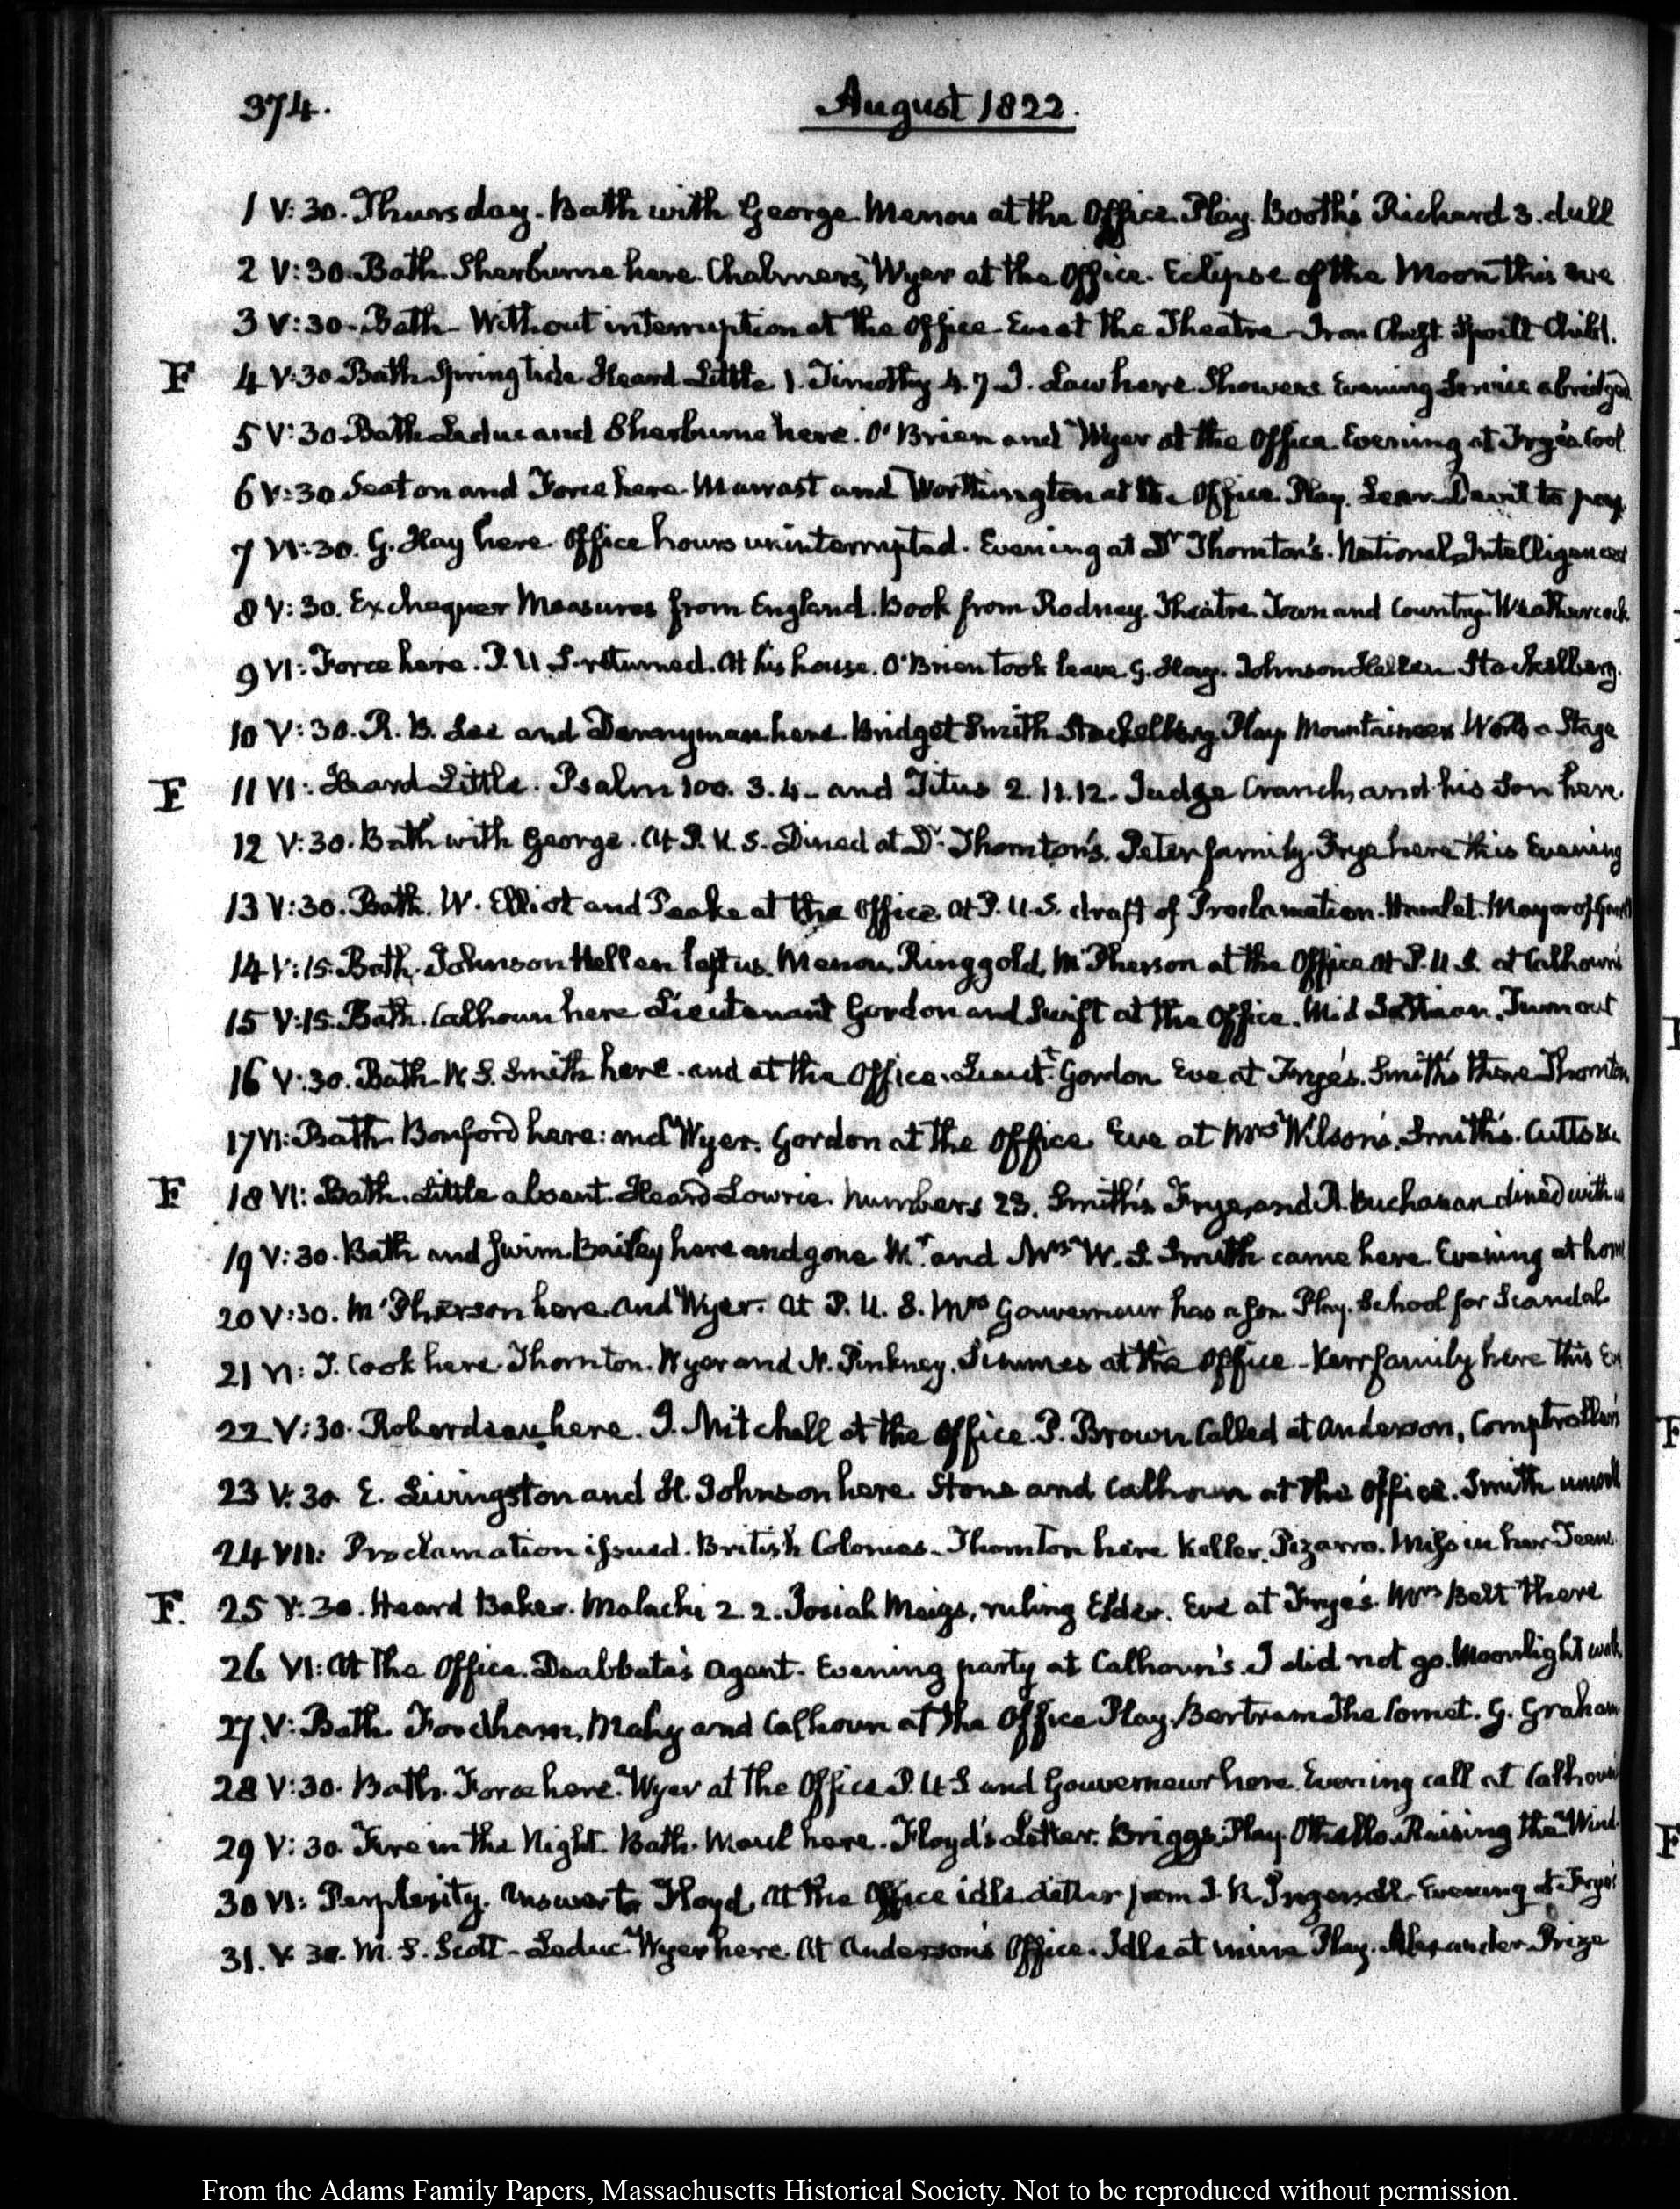 374.
August 1822.
1 V:30. Thursday. Bath with George. Menou at the Office. Play. Booth's Richard 3. dull
2 V:30. Bath. Sherburne here. Chalmers, Wyer at the Office. Eclipse of the Moon this eve
3 V:30. Bath. Without interruption at the Office. Eve at the Theatre. Iron Chest. Spoilt Child.
F 4 V:30. Bath. Spring tide. Heard Little 1. Timothy 4. 7. T. Law here. Showers. Evening Service abridged
5 V:30. Bath. Leduc and Sherburne here. O'Brien and Wyer at the Office. Evening at Frye's. Cool
6 V:30 Seaton and Force here. Marrast and Worthington at the Office. Play. Lear. Devil to pay.
7 VI:30. G. Hay here. Office hours uninterrupted. Evening at Dr Thornton's. National Intelligencer
8 V:30. Exchequer Measures from England. Book from Rodney. Theatre. Town and Country. Weathercock
9 VI: Force here. P. U. S. returned. At his house. O'Brien took leave. G. Hay. Johnson Hellen. Stackelberg.
10 V:30. R. B. Lee and here. Bridget Smith. Stackelberg. Play. Mountaineers. World a Stage
F 11 VI: Heard Little. Psalm 100. 3. 4. and Titus 2. 11. 12. Judge Cranch, and his Son here.
12 V:30. Bath with George. At P. U. S. Dined at Dr. Thornton's. Peter family. Frye here this Evening
13 V:30. Bath. W. Elliot and Peake at the Office. At P. U. S. draft of Proclamation. Hamlet. Mayor of
14 V:15. Bath. Johnson Hellen left us. Menou, Ringgold, McPherson at the Office. At P. U. S. at Calhoun's
15 V:15. Bath. Calhoun here. Lieutenant Gordon and Swift at the Office. Turn out
16 V:30. Bath. W. S. Smith here. and at the Office. Lieutt. Gordon. Eve at Frye's. Smith's there. Thornton
17 VI: Bath. Bomford here: and Wyer. Gordon at the Office. Eve at Mrs Wilson's. Smith's. Cutts &c.
F 18 VI: Bath. Little absent. Heard Lowrie. Numbers 23. Smith's Frye, and R. Buchanan dined with us
19 V:30. Bath and Swim. Bailey here and gone. Mr. and Mrs W. S. Smith came here. Evening at home
20 V:30. McPherson here and Wyer. At P. U. S. Mrs Gouverneur has a Son. Play. School for Scandal
21 VI: T. Cook here. Thornton. Wyer and N. Pinkney. at the Office. Kerr family here this Eve
22 V:30. Roberdeau here. J. Mitchell at the Office. P. Brown. Called at Anderson, Comptroller's
23 V:30 E. Livingston and H. Johnson here. Stone and Calhoun at the Office. Smith unwell
24 VII: Proclamation issued. British Colonies. Thornton here. Keller. Pizarro. Miss in her Teens
F. 25 V:30. Heard Baker. Malachi 2. 2. Josiah Meigs, ruling Elder. Eve at Frye's. Mrs Belt there
26 VI: At the Office. Deabbate's Agent. Evening party at Calhoun's. I did not go. Moonlight walk
27. V: Bath. Fordham, and Calhoun at the Office. Play. Bertram. The Comet. G. Graham
28 V:30. Bath. Force here. Wyer at the Office. P. U. S and Gouverneur here. Evening call at Calhoun's
29 V:30. Fire in the Night. Bath. Maul here. Floyd's Letter. Briggs. Play. Othello. Raising the Wind.
30 VI: Perplexity. Answer to Floyd. At the Office idle. Letter from J. R. Ingersoll. Evening at Frye's
31. V:30. M. S. Scott. Leduc. Wyer here. At Anderson's Office. Idle at mine. Play. Alexander. Prize
From the Adams Family Papers, Massachusetts Historical Society. Not to be reproduced without permission.